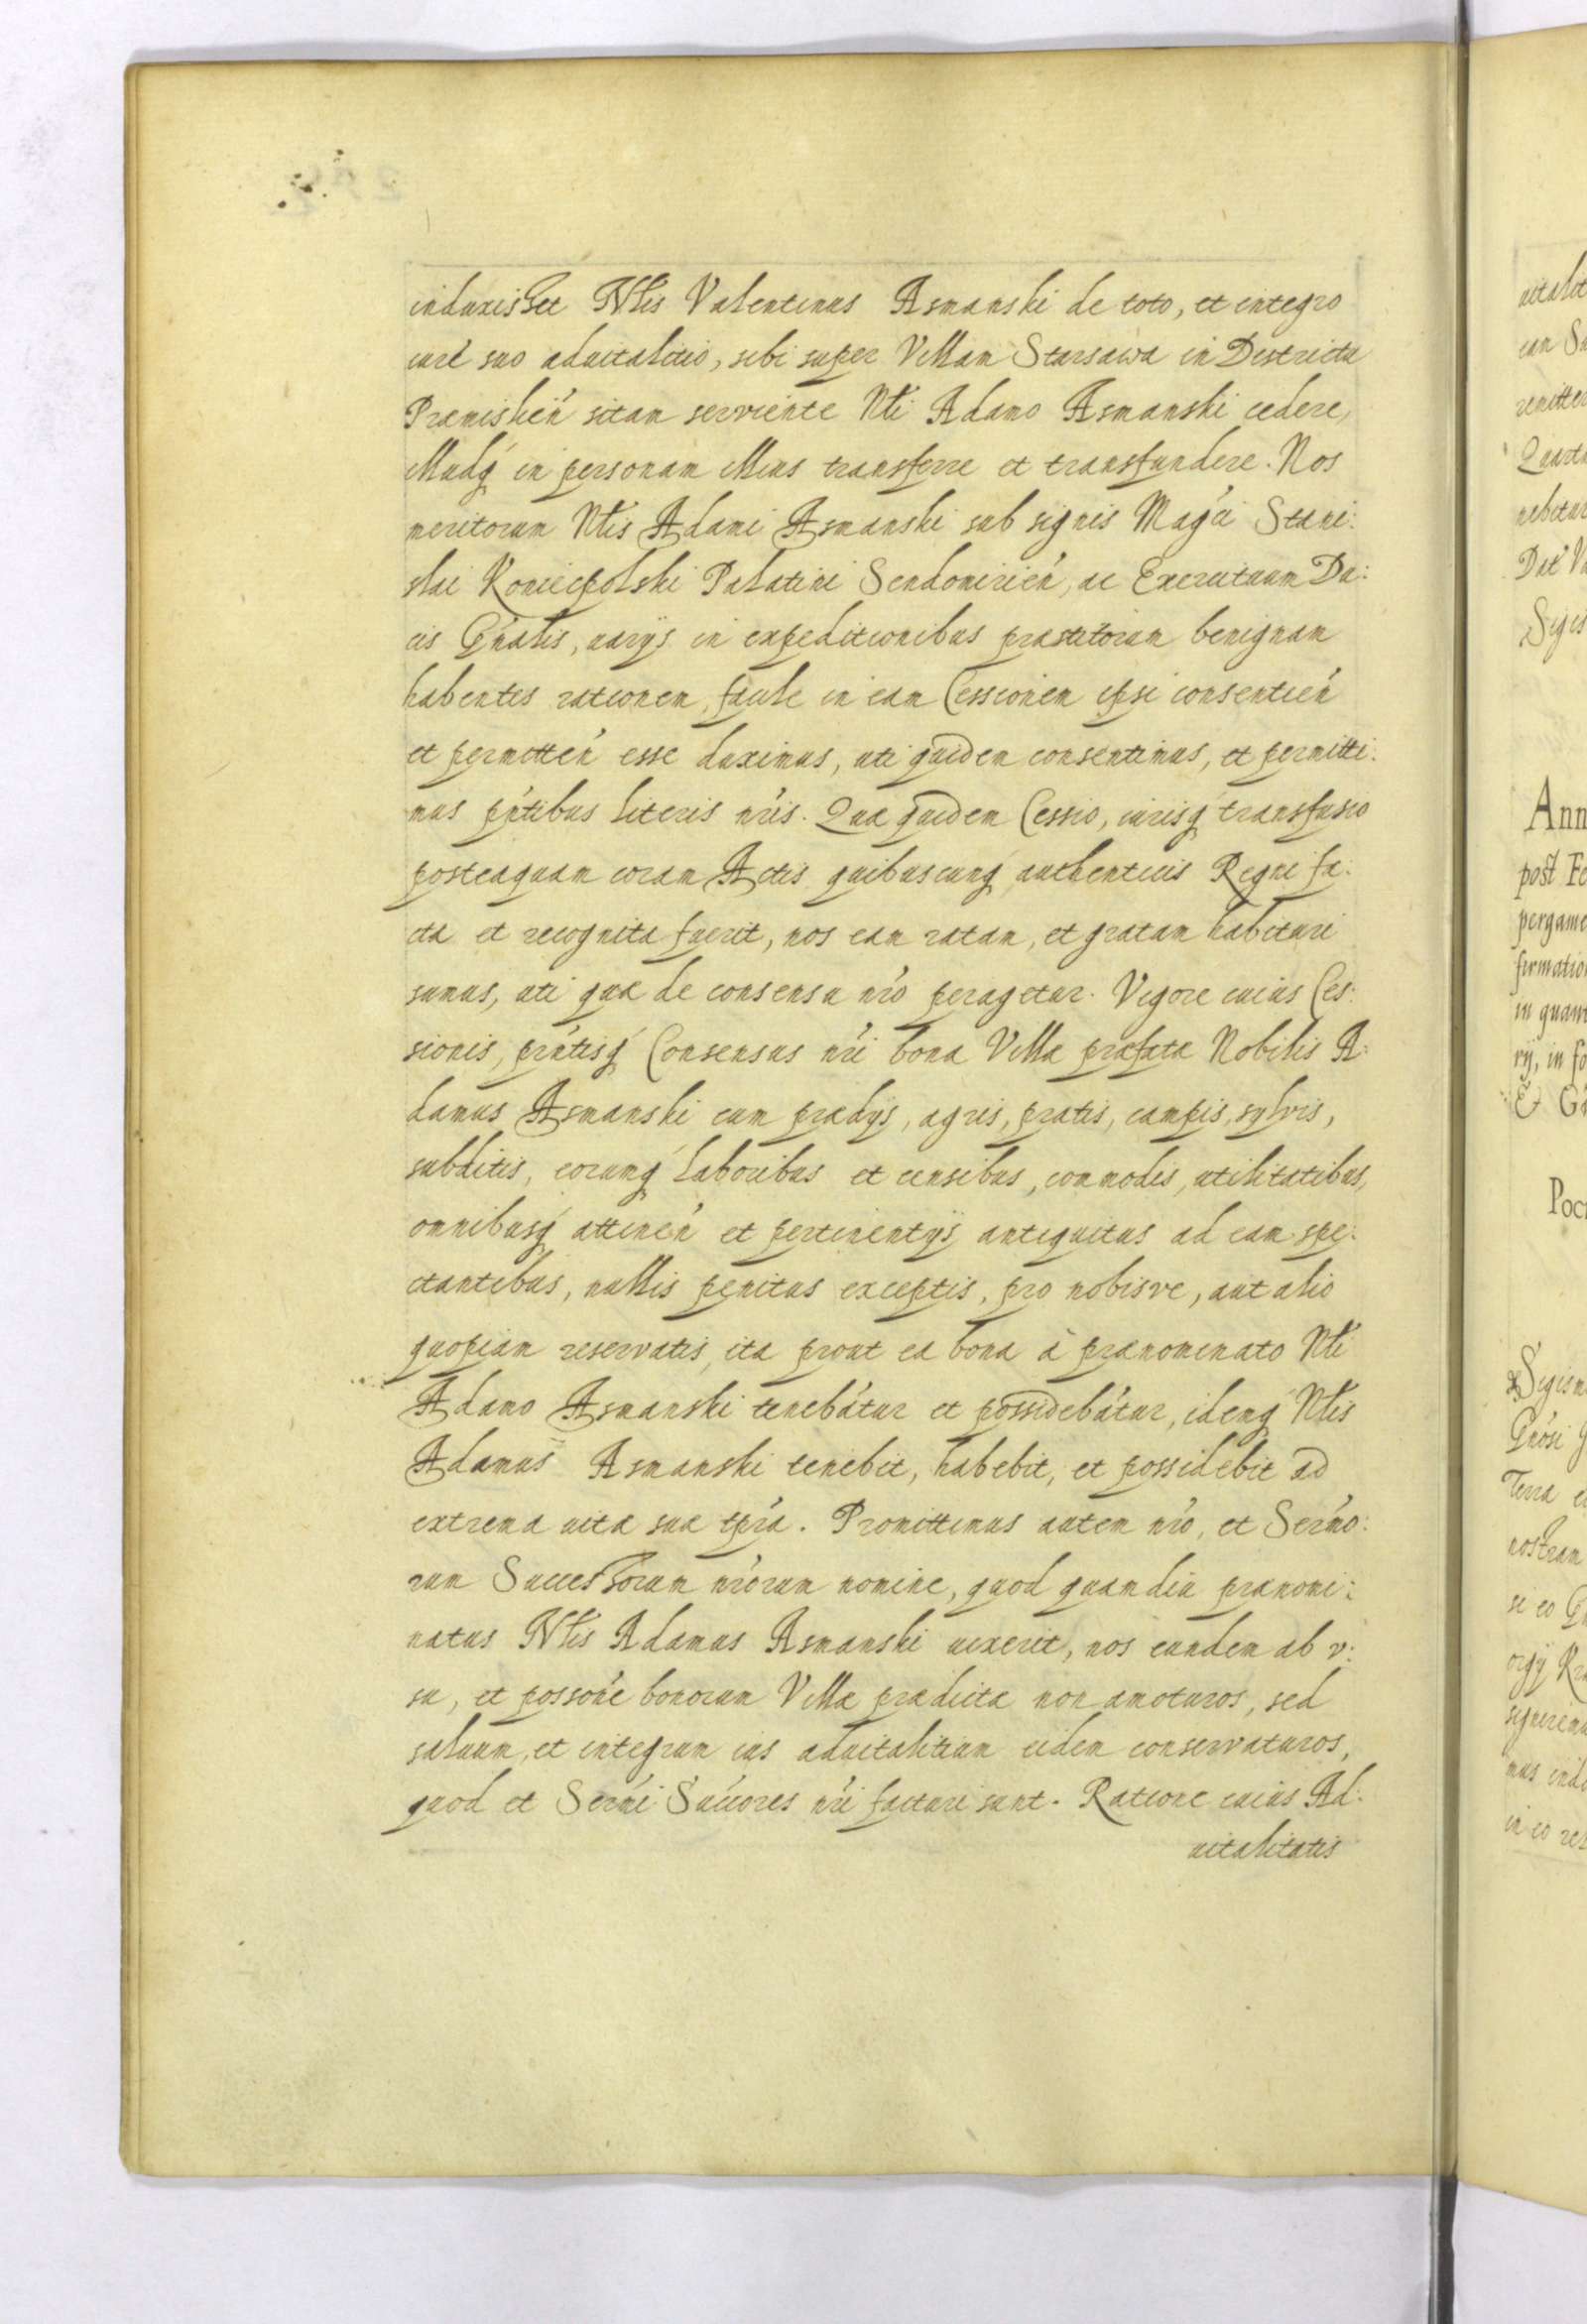 induxisset Nblis Valentinus Asmanski de toto, et integro
iure suo aduitalitio, sibi super Villam Starsawa in Districtu
Præmislień sitam serviente Nbli Adamo Asmanski cedere,
illudq́ in personam illius transferre et transfundere. Nos
meritorum Nblis Adami Asmanski sub signis Magćı Stani:
slai Koniecpolski Palatini Sendomirień, ac Exercituum Du:
cis Gńalis, uarijs in expeditionibus præstitorum benignam
habentes rationem, facile in eam Cessionem ipsi consentień
et permitteń esse duximus, uti quidem consentimus, et permitti:
mus pńtibus literis nŕis. Quæ quidem Cessio, iurisq́ transfusio
posteaquam coram Actis quibuscunq́ authenticis Regni fa:
cta et recognita fuerit, nos eam ratam, et gratam habituri
sumus, uti quæ de consensu nŕo peragetur. Vigore cuius Ces:
sionis, pńtisq́ Consensus nŕi bona Villæ præfatæ Nobilis A:
damus Asmanski cum prædijs, agris, pratis, campis, sylvis,
subditis, eorumq́ laboribus et censibus, commodis, utilitatibus,
omnibusq́ attineń et pertinentijs antiquitus ad eam spe:
ctantibus, nullis penitus exceptis, pro nobisve, aut alio
quopiam reservatis, ita prout ea bona à prænominato Nbli
Adamo Asmanski tenebátur et possidebátur, idemq́ Nblis
Adamus Asmanski tenebit, habebit, et possidebit ad
extrema uitæ suæ tṕra. Promittimus autem nŕo, et Serḿo:
rum Successorum nŕorum nomine, quod quamdiu prænomi:
natus Nblis Adamus Asmanski uixerit, nos eundem ab v:
su, et possońe bonorum Villæ prædictæ non amoturos, sed
saluum, et integrum ius aduitalitium eidem conservaturos,
quod et Serḿi Succ̉ores nŕi facturi sunt. Ratione cuius Ad:
uitalitatis